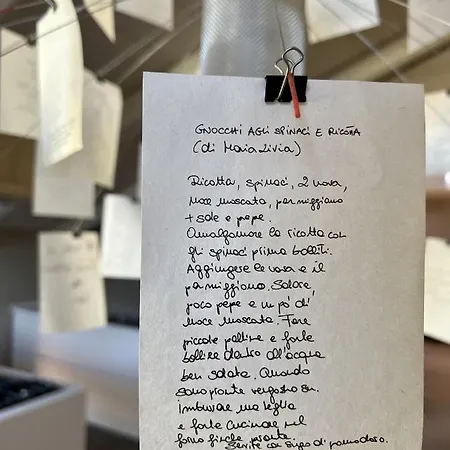 GNOCCHI AGLI SPINACI E RICOTTA
(di Maria Livia)
Ricotta, spinaci, 2 uova,
noce moscata, parmiggiano
+ sale e pepe.
Amalgamare la ricotta con
gli spinaci prima bolliti.
Aggiungere le uova e il
parmiggiano. Salare,
poco pepe e un pò di
noce moscata. Fare
piccole palline e farle
bollire dentro all'acqua
ben salata. Quando
sono pronte vengono su.
Imburrare una teglia
e farle cucinare nel
forno finchè pronte.
Servite con sugo di pomodoro.